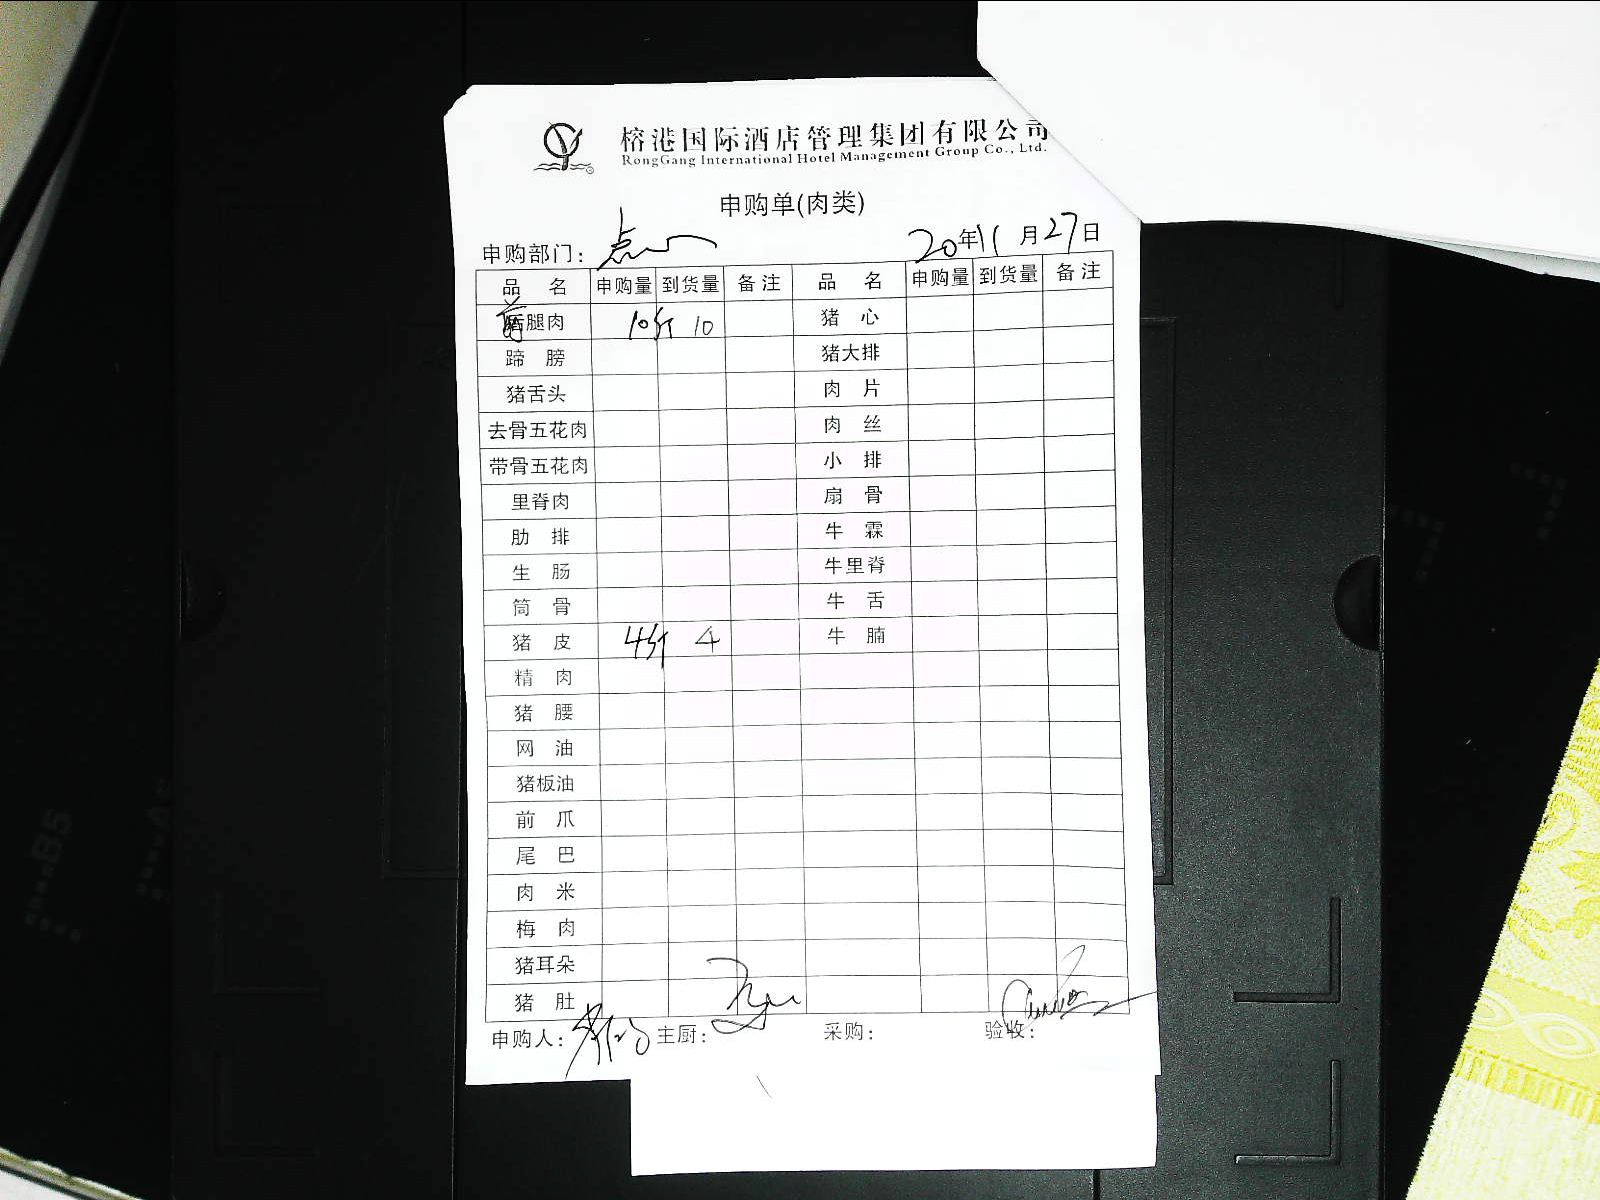 榕港国际酒店管理集团有限公司
RongGang International Hotel Management Group Co., Ltd.
申购单(肉类)
申购部门：点心 20年11月27日
品 名 申购量 到货量 备注 品 名 申购量 到货量 备注
前腿肉 10斤 10 猪 心
蹄 膀 猪大排
猪舌头 肉 片
去骨五花肉 肉 丝
带骨五花肉 小 排
里脊肉 扇 骨
肋 排 牛 霖
生 肠 牛里脊
筒 骨 牛 舌
猪 皮 4斤 4 牛 腩
精 肉
猪 腰
网 油
猪板油
前 爪
尾 巴
肉 米
梅 肉
猪耳朵
猪 肚
申购人： 主厨： 采购： 验收：
B5